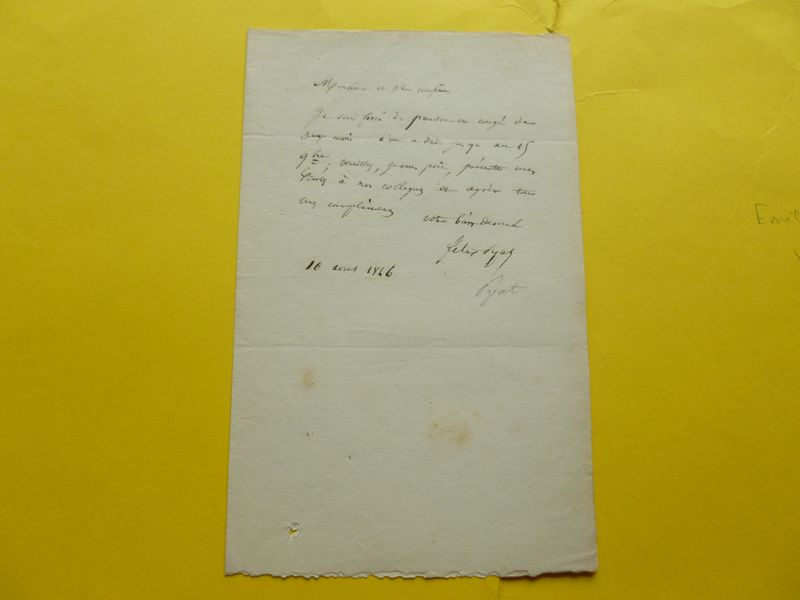 Monsieur et cher confrère
Je suis forcé de prendre un congé de
deux mois c'est à dire jusqu'au 15
9bre; veuillez, je vous prie, présenter mes
à nos collègues et agréer tous
mes compliments votre bien dévoué
Felix Pyat
16 août 1846
Pyat